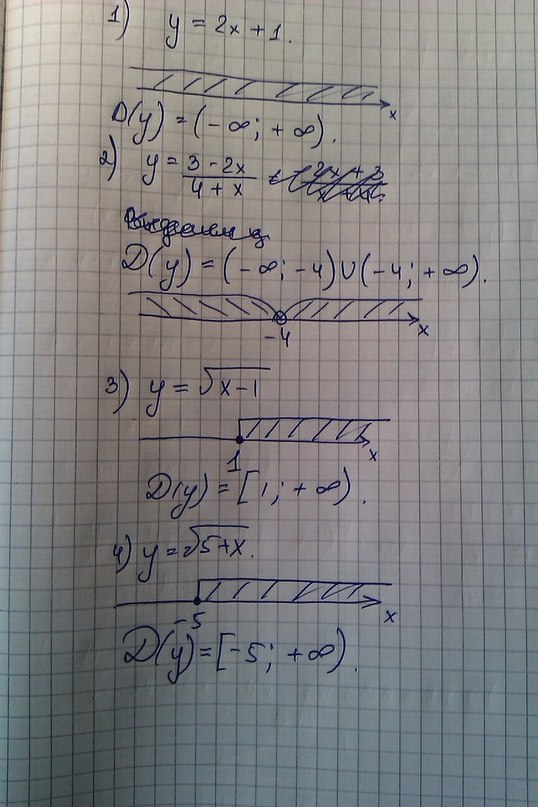 1) y = 2x + 1.
x
D(y) = (-∞; +∞).
2) y = \frac{3-2x}{4+x}
D(y) = (-∞; -4) ∪ (-4; +∞).
x
-4
3) y = √(x-1)
1
x
D(y) = [1; +∞).
4) y = √(5+x).
-5
x
D(y) = [-5; +∞).